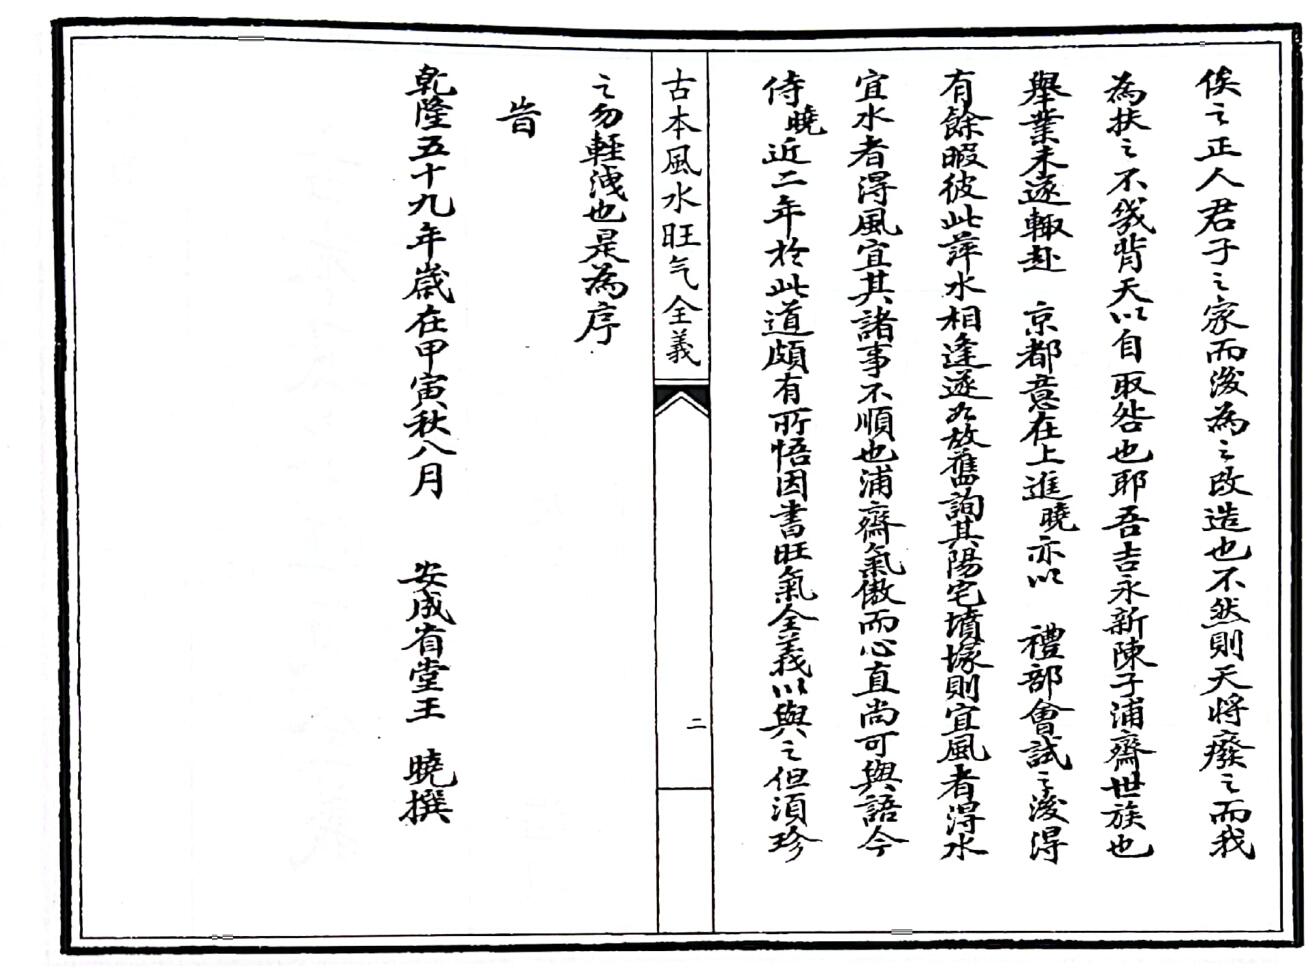 俟之正人君子之家而後為之改造也不然則天將癈之而我
為扶之不幾背天以自取咎也耶吾吉永新陳子浦齋世族也
舉業未遂輙赴 京都意在上進曉亦以 禮部會試之後得
有餘暇彼此萍水相逢遂故舊詢其陽宅墳塚則宜風者得水
宜水者得風宜其諸事不順也浦齋氣傲而心直尚可與語今
侍曉近二年於此道頗有所悟因書旺氣全義以與之但須珍
古本風水旺气全義
二
之勿輕洩也是為序
旹
乾隆五十九年歲在甲寅秋八月 安成省堂王 曉撰